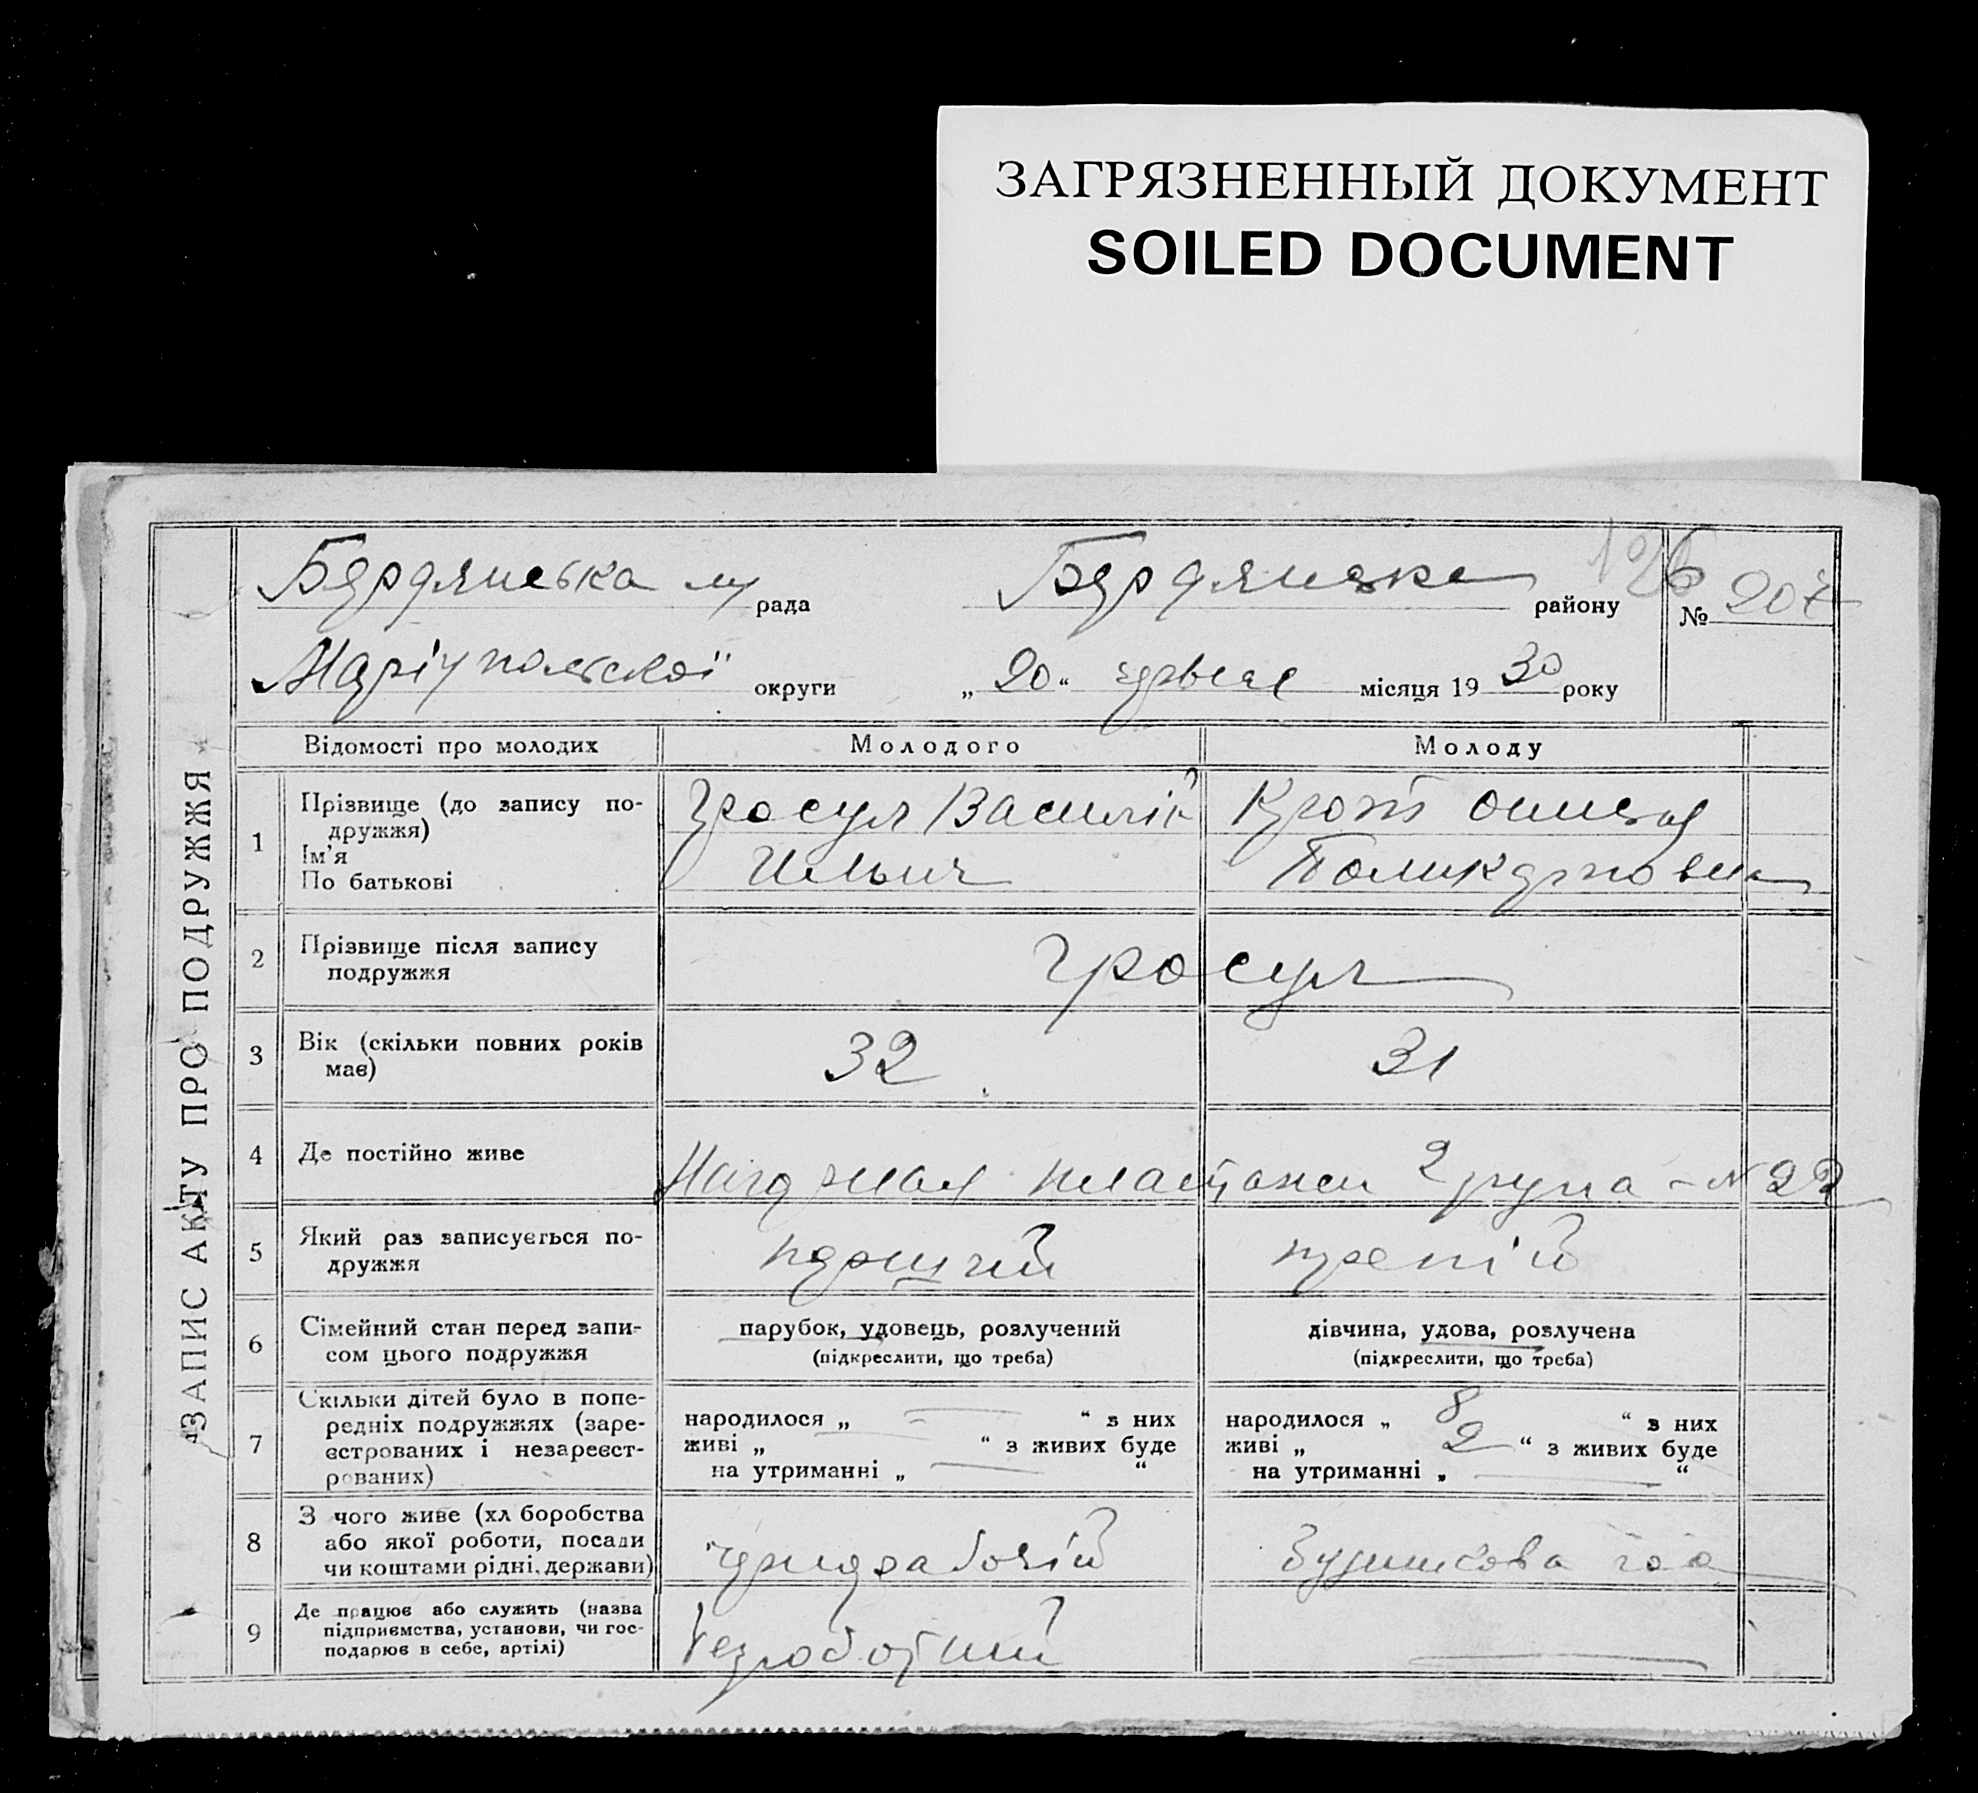 ЗАГРЯЗНЕННЫЙ ДОКУМЕНТ
SOILED DOCUMENT
ЗАПИС АКТУ ПРО ПОДРУЖЖЯ
Бердянська м рада Бердянське району № 207
Маріупольскої округи „ 20 “ червня місяця 19 30 року
Відомості про молодих Молодого Молоду
1 Прізвище (до запису по-
дружжя)
Ім'я
По батькові
Гросул Василій
Ильич
Крот
Поликарповна
2 Прізвище після запису
подружжя
Гросул
3 Вік (скільки повних років
має)
32 31
4 Де постійно живе
2 група - N 22
5 Який раз записується по-
дружжя
перший третій
6 Сімейний стан перед запи-
сом цього подружжя
парубок, удовець, розлучений
(підкреслити, що треба)
дівчина, удова, розлучена
(підкреслити, що треба)
7 Скільки дітей було в попе-
редніх подружжях (заре-
єстрованих і незареєст-
рованих)
народилося „ — “ з них
живі „ “ з живих буде
на утриманні „ — “
народилося „ 8 “ з них
живі „ 2 “ з живих буде
на утриманні „ — “
8 З чого живе (хл боробства
або якої роботи, посади
чи коштами рідні, держави)
чернорабочій
9 Де працює або служить (назва
підприємства, установи, чи гос-
подарює в себе, артілі)
безроботний —